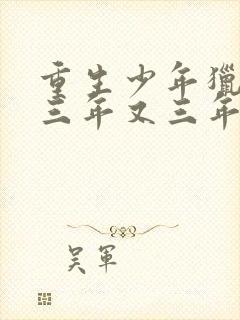 重生少年獵
三年又三年
吴軍